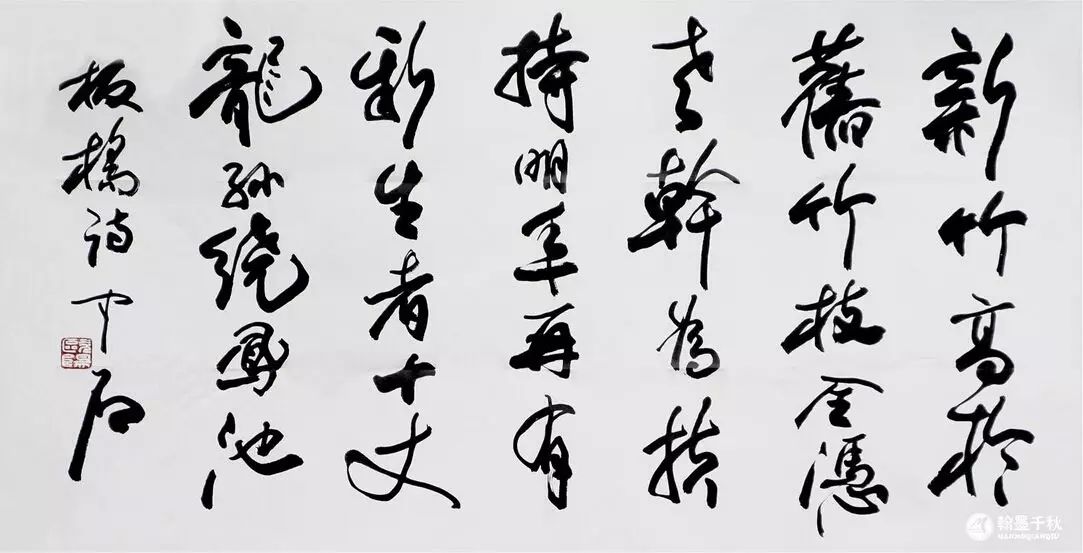 新竹高於
舊竹枝全憑
老幹為扶
持明年再有
新生者十丈
龍孫繞鳳池
板橋詩中石
翰墨千秋
HANMOQIANQIU